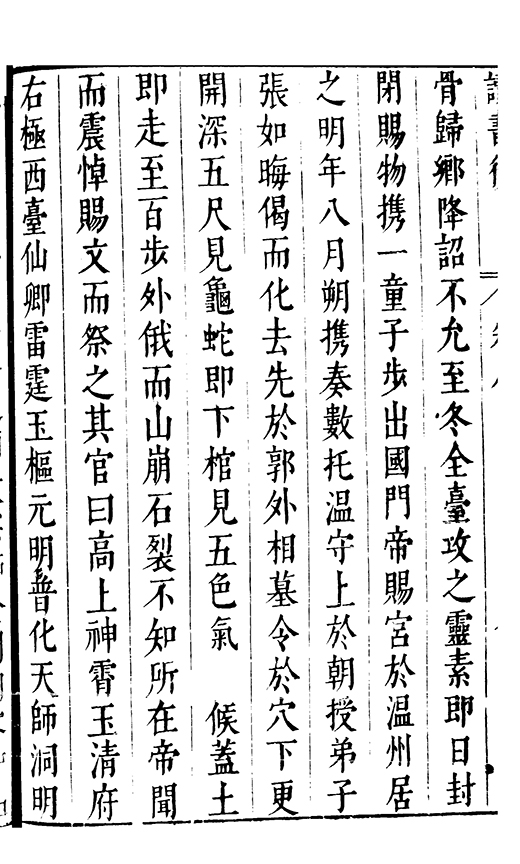 讀書後
骨歸鄉降詔不允至冬全臺攻之靈素即日封
閉賜物攜一童子步出國門帝賜宮於溫州居
之明年八月朔攜奏數托溫守上於朝授弟子
張如晦偈而化去先於郭外相墓令於穴下更
開深五尺見龜蛇即下棺見五色氣 候蓋土
即走至百步外俄而山崩石裂不知所在帝聞
而震悼賜文而祭之其官曰高上神霄玉清府
右極西臺仙卿雷霆玉樞元明普化天師洞明